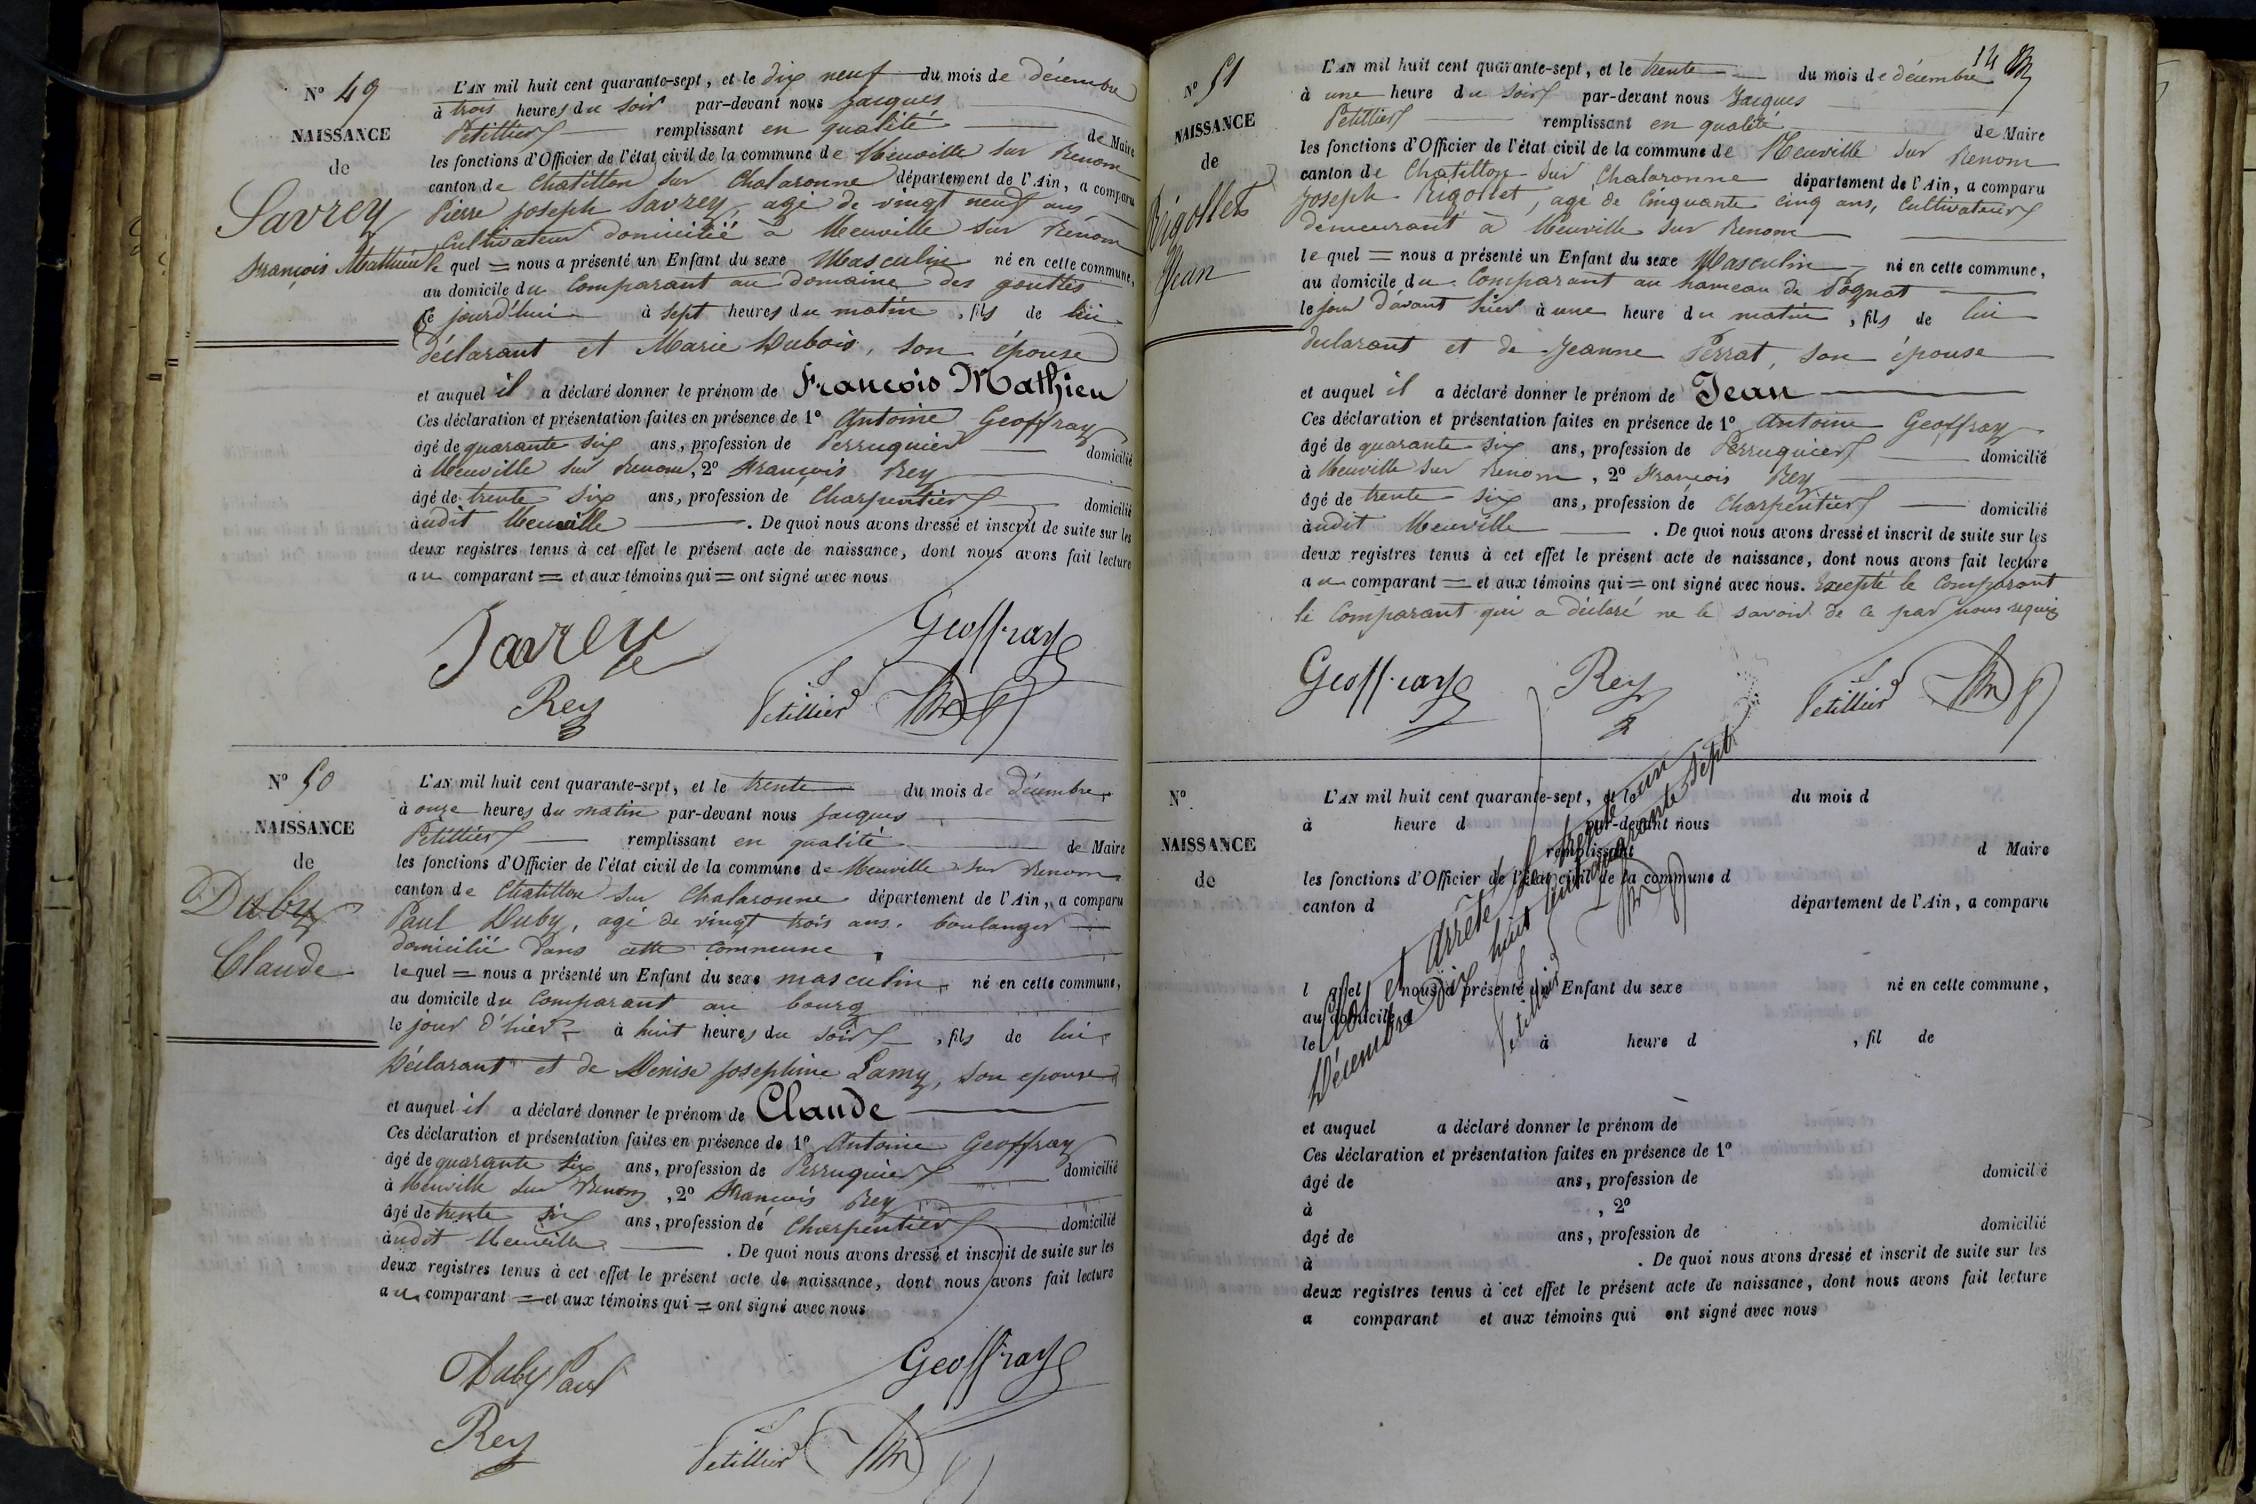 N° 49
NAISSANCE
de
Savrey
François Mathieu
L'AN mil huit cent quarante-sept, et le dix neuf du mois de décembre
à trois heures du soir par-devant nous Jacques
Petillier remplissant en qualité de Maire
les fonctions d'Officier de l'état civil de la commune de Neuville sur Renom
canton de Chatillon sur Chalaronne département de l'Ain, a comparu
Pierre joseph Savrey, agé de vingt neuf ans
Cultivateur domicilié à Neuville sur Renom
le quel = nous a présenté un Enfant du sexe Masculin né en cette commune,
au domicile du Comparant au domaine des gouttes
ce jourd'hui à sept heures du matin, fils de lui
déclarant et Marie Dubois, son épouse
et auquel il a déclaré donner le prénom de François Mathieu
Ces déclaration et présentation faites en présence de 1° Antoine Geoffray
âgé de quarante six ans, profession de Perruquier domicilié
à Neuville sur Renom, 2° François Rey
âgé de trente six ans, profession de Charpentier domicilié
audit Neuville . De quoi nous avons dressé et inscrit de suite sur les
deux registres tenus à cet effet le présent acte de naissance, dont nous avons fait lecture
au comparant = et aux témoins qui = ont signé avec nous
Savrey
Geoffray
Rey
Petillier
N° 50
NAISSANCE
de
Duby
Claude
L'AN mil huit cent quarante-sept, et le trente du mois de décembre
à onze heures du matin par-devant nous Jacques
Petillier remplissant en qualité de Maire
les fonctions d'Officier de l'état civil de la commune de Neuville sur Renom
canton de Chatillon sur Chalaronne département de l'Ain, a comparu
Paul Duby, agé de vingt trois ans, boulanger
domicilié dans cette commune
le quel = nous a présenté un Enfant du sexe masculin né en cette commune,
au domicile du Comparant au bourg
le jour d'hier à huit heures du soir, fils de lui
Déclarant et de Denise josephine Lamy, son epouse
et auquel il a déclaré donner le prénom de Claude
Ces déclaration et présentation faites en présence de 1° Antoine Geoffray
âgé de quarante six ans, profession de Perruquier domicilié
à Neuville sur Renom, 2° François Rey
âgé de trente six ans, profession de Charpentier domicilié
audit Neuville . De quoi nous avons dressé et inscrit de suite sur les
deux registres tenus à cet effet le présent acte de naissance, dont nous avons fait lecture
au comparant = et aux témoins qui = ont signé avec nous
Duby Paul
Geoffray
Rey
Petillier
14
N° 51
NAISSANCE
de
Rigollet
Jean
L'AN mil huit cent quarante-sept, et le trente du mois de décembre
à une heure du soir par-devant nous Jacques
Petillier remplissant en qualité de Maire
les fonctions d'Officier de l'état civil de la commune de Neuville sur Renom
canton de Chatillon sur Chalaronne département de l'Ain, a comparu
Joseph Rigollet, agé de Cinquante cinq ans, Cultivateur
demeurant à Neuville sur Renom
le quel = nous a présenté un Enfant du sexe Masculin né en cette commune,
au domicile du Comparant au hameau de
le jour d'avant hier à une heure du matin, fils de lui
declarant et de Jeanne Perrat, son épouse
et auquel il a déclaré donner le prénom de Jean
Ces déclaration et présentation faites en présence de 1° Antoine Geoffray
âgé de quarante six ans, profession de Perruquier domicilié
à Neuville sur Renom, 2° François Rey
âgé de trente six ans, profession de Charpentier domicilié
audit Neuville . De quoi nous avons dressé et inscrit de suite sur les
deux registres tenus à cet effet le présent acte de naissance, dont nous avons fait lecture
au comparant = et aux témoins qui = ont signé avec nous. Excepté le Comparant
le Comparant qui a déclaré ne le savoir de ce par nous requis
Geoffray
Rey
Petillier
N°
NAISSANCE
de
L'AN mil huit cent quarante-sept, et le du mois d
à heure d par-devant nous
remplissant d Maire
les fonctions d'Officier de l'état civil de la commune d
canton d département de l'Ain, a comparu
l quel nous a présenté un Enfant du sexe né en cette commune,
au domicile d
le à heure d , fil de
et auquel a déclaré donner le prénom de
Ces déclaration et présentation faites en présence de 1°
âgé de ans, profession de domicilié
à , 2°
âgé de ans, profession de domicilié
à . De quoi nous avons dressé et inscrit de suite sur les
deux registres tenus à cet effet le présent acte de naissance, dont nous avons fait lecture
a comparant et aux témoins qui ont signé avec nous
Clos et arrêté le trente un
Décembre dix huit cent quarante sept
Petillier